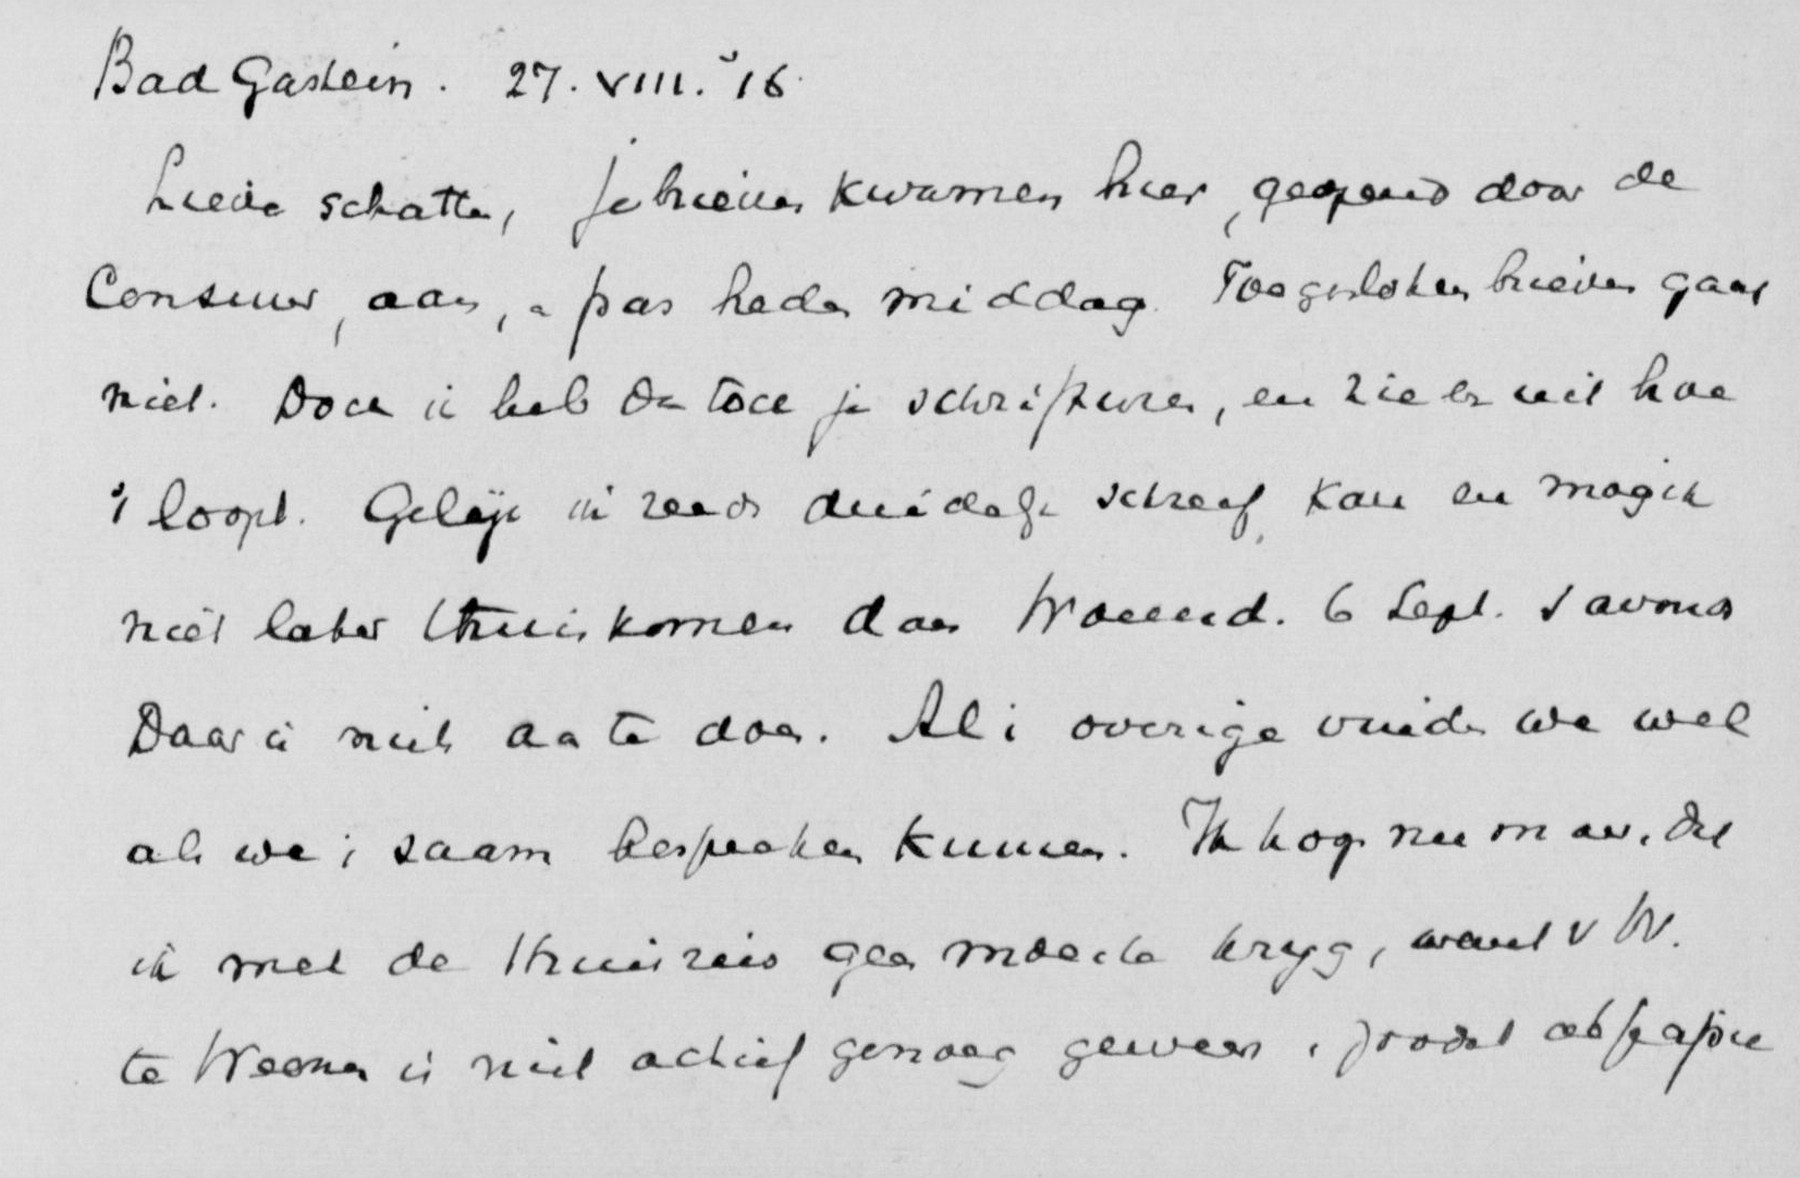 Bad Gastein. 27. VIII. '16.
Lieve schatten, je brieven kwamen hier, geopend door de
Censuur, aan, pas heden middag. Toegesloten brieven gaan
niet. Doch ik heb dan toch je schrijven, en zie er uit hoe
't loopt. Gelijk ik reeds duidelijk schreef, kan en mag ik
niet later thuiskomen dan Woensd. 6 Sept. s avonds
Daar is niets aan te doen. Al 't overige vinden we wel
als we 't saam bespreken kunnen. Ik hoop nu maar, dat
ik met de thuisreis geen moeite kryg, want v W.
te Weenen is niet actief genoeg geweest, zoodat